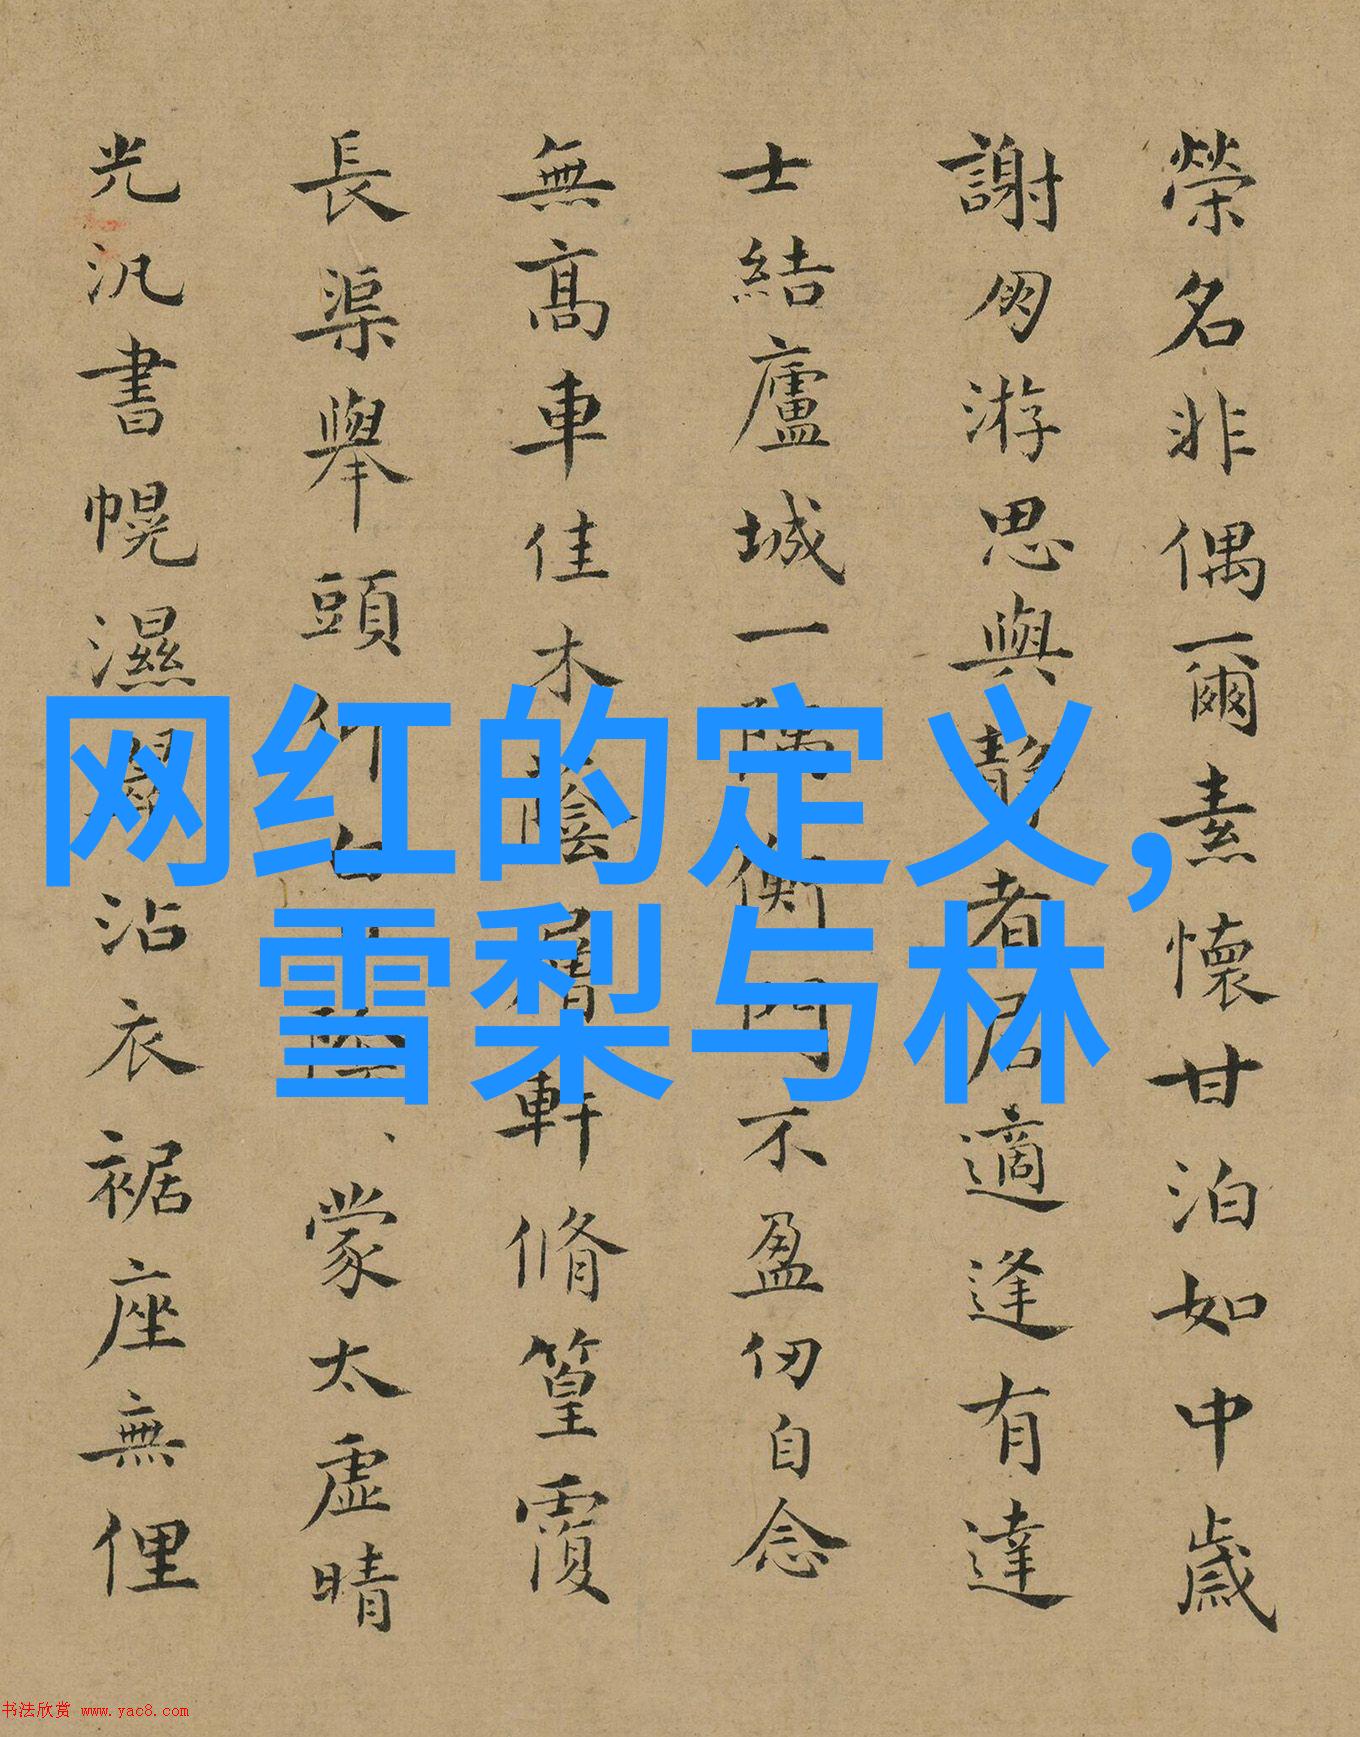 榮名非偶爾素懷甘泊如中歲
謝朋游思與靜者居適逢有達
士結廬城一隅衡門不盈仞自念
無髙車佳木蔭層軒脩篁覆
長渠舉頭蒙太虛晴
光汎書幌濕沾衣裾座無俚
网红的定义,
雪梨与林
书法欣赏 www.yac8.com